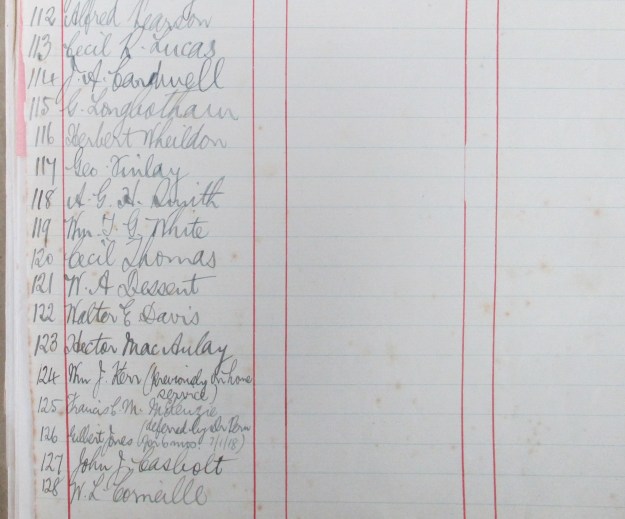 112 Alfred Pearson
113 Cecil R. Lucas
114 J. A. Cardwell
115 G. Longbotham
116 Herbert Wheildon
117 Geo Finlay
118 A. G. H. Smith
119 Wm. T. G. White
120 Cecil Thomas
121 W. A Dessent
122 Walter E Davis
123 Hector MacAulay
124 Wm J. Kerr (previously in home
service)
125 Francis E. M. McKenzie
(deferred by Dr
126 Gilbert Jones for 6 mos. 7/1/18)
127 John J. Casbolt
128 W. L. Corneille